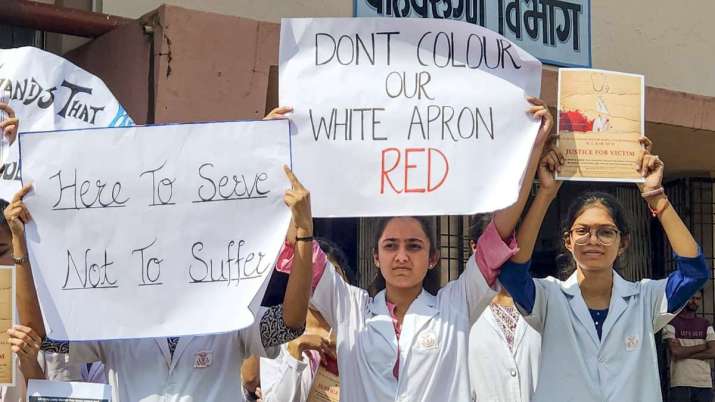 बाह्यरुग्ण विभाग
HANDS THAT
HERE TO SERVE
NOT TO SUFFER
DONT COLOUR
OUR
WHITE APRON
RED
JUSTICE FOR VICTIM